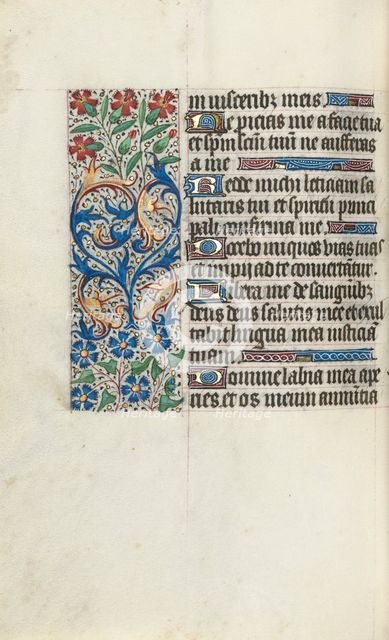 in visceribz meis
Ne picias me a facie tua
et spm̄ sc̄m tuū ne auferas
a me
Redde michi leticiam sa
lutaris tui et spiritū princi
pali confirma me
Docebo iniquos vias tuas
et impij ad te convertātur
Libera me de sanguībz
deus deus salutis mee et exul
tabit lingua mea iusticiā
tuam
Domine labia mea ape
ries et os meum annūtia
Heritage
Heritage